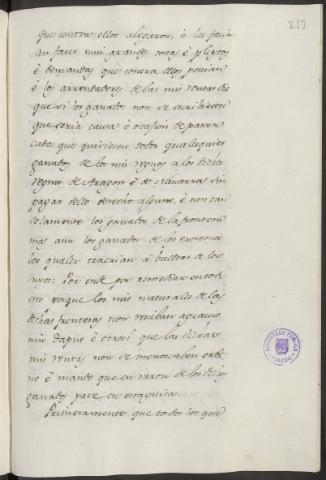 253
que contra ellos alegaron, è les faci-
an facer mui grandes costas è pleytos
è demandas que contra ellos ponian
è los arrendadores de las mis rentas dic
que si los ganados non se escribiesen
que seria causa è ocasion de pasar
cada que quisiesen todos qualesquier
ganados de los mis regnos a los dichos
regnos de Aragon è de Navarra sin
pagar dello derecho alguno, è non tan
solamente los ganados de la frontera
mas aun los ganados de los extremos
los quales traerian à bueltas de los
suyos: Por ende por remediar en todo
esto porque los mis naturales de las
dichas fronteras non reciban agravio
nin dapño è otrosi que las dichas
mis rentas non se menoscaben orde
no è mando que en razon de los dichos
ganados pase en esta guisa.
Primeramente que todos los que
BIBLIOTECA PUBLICA
TOLEDO